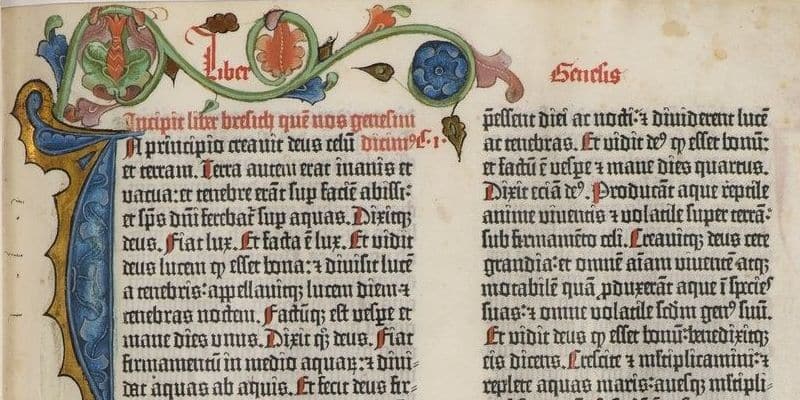 Liber
Genesis
Incipit liber bresith quē nos genesim
IN principio creauit deus celū dicimꝰ C. 1.
et terram. Terra autem erat inanis et
vacua: et tenebre erāt sup faciē abissi:
et sp̄s dn̄i ferebat᷑ sup aquas. Dixitqꝫ
deus. Fiat lux. Et facta ē lux. Et vidit
deus lucem ꝙ esset bona: ⁊ diuisit lucē
a tenebris: appellauitqꝫ lucem diem ⁊
tenebras noctem. Factūqꝫ est vespe et
mane dies vnus. Dixit qꝫ deus. Fiat
firmamentū in medio aquaꝝ: ⁊ diui-
dat aquas ab aquis. Et fecit deus fir-
p̄essent diei ac nocti: ⁊ diuiderent lucē
ac tenebras. Et vidit deꝰ ꝙ esset bonū:
et factū ē vespe ⁊ mane dies quartus.
Dixit eciā deꝰ. Producāt aque reptile
anime viuentis ⁊ volatile super terrā:
sub firmamēto celi. Creauitqꝫ deus cete
grandia: et omnē aīam viuentē atqꝫ
motabilē quā ꝓduxerāt aque ī species
suas: ⁊ omne volatile scdm genꝰ suū.
Et vidit deus ꝙ esset bonū: benedixitqꝫ
eis dicens. Crescite ⁊ mltiplicamini: ⁊
replete aquas maris: auesqꝫ mltipli-